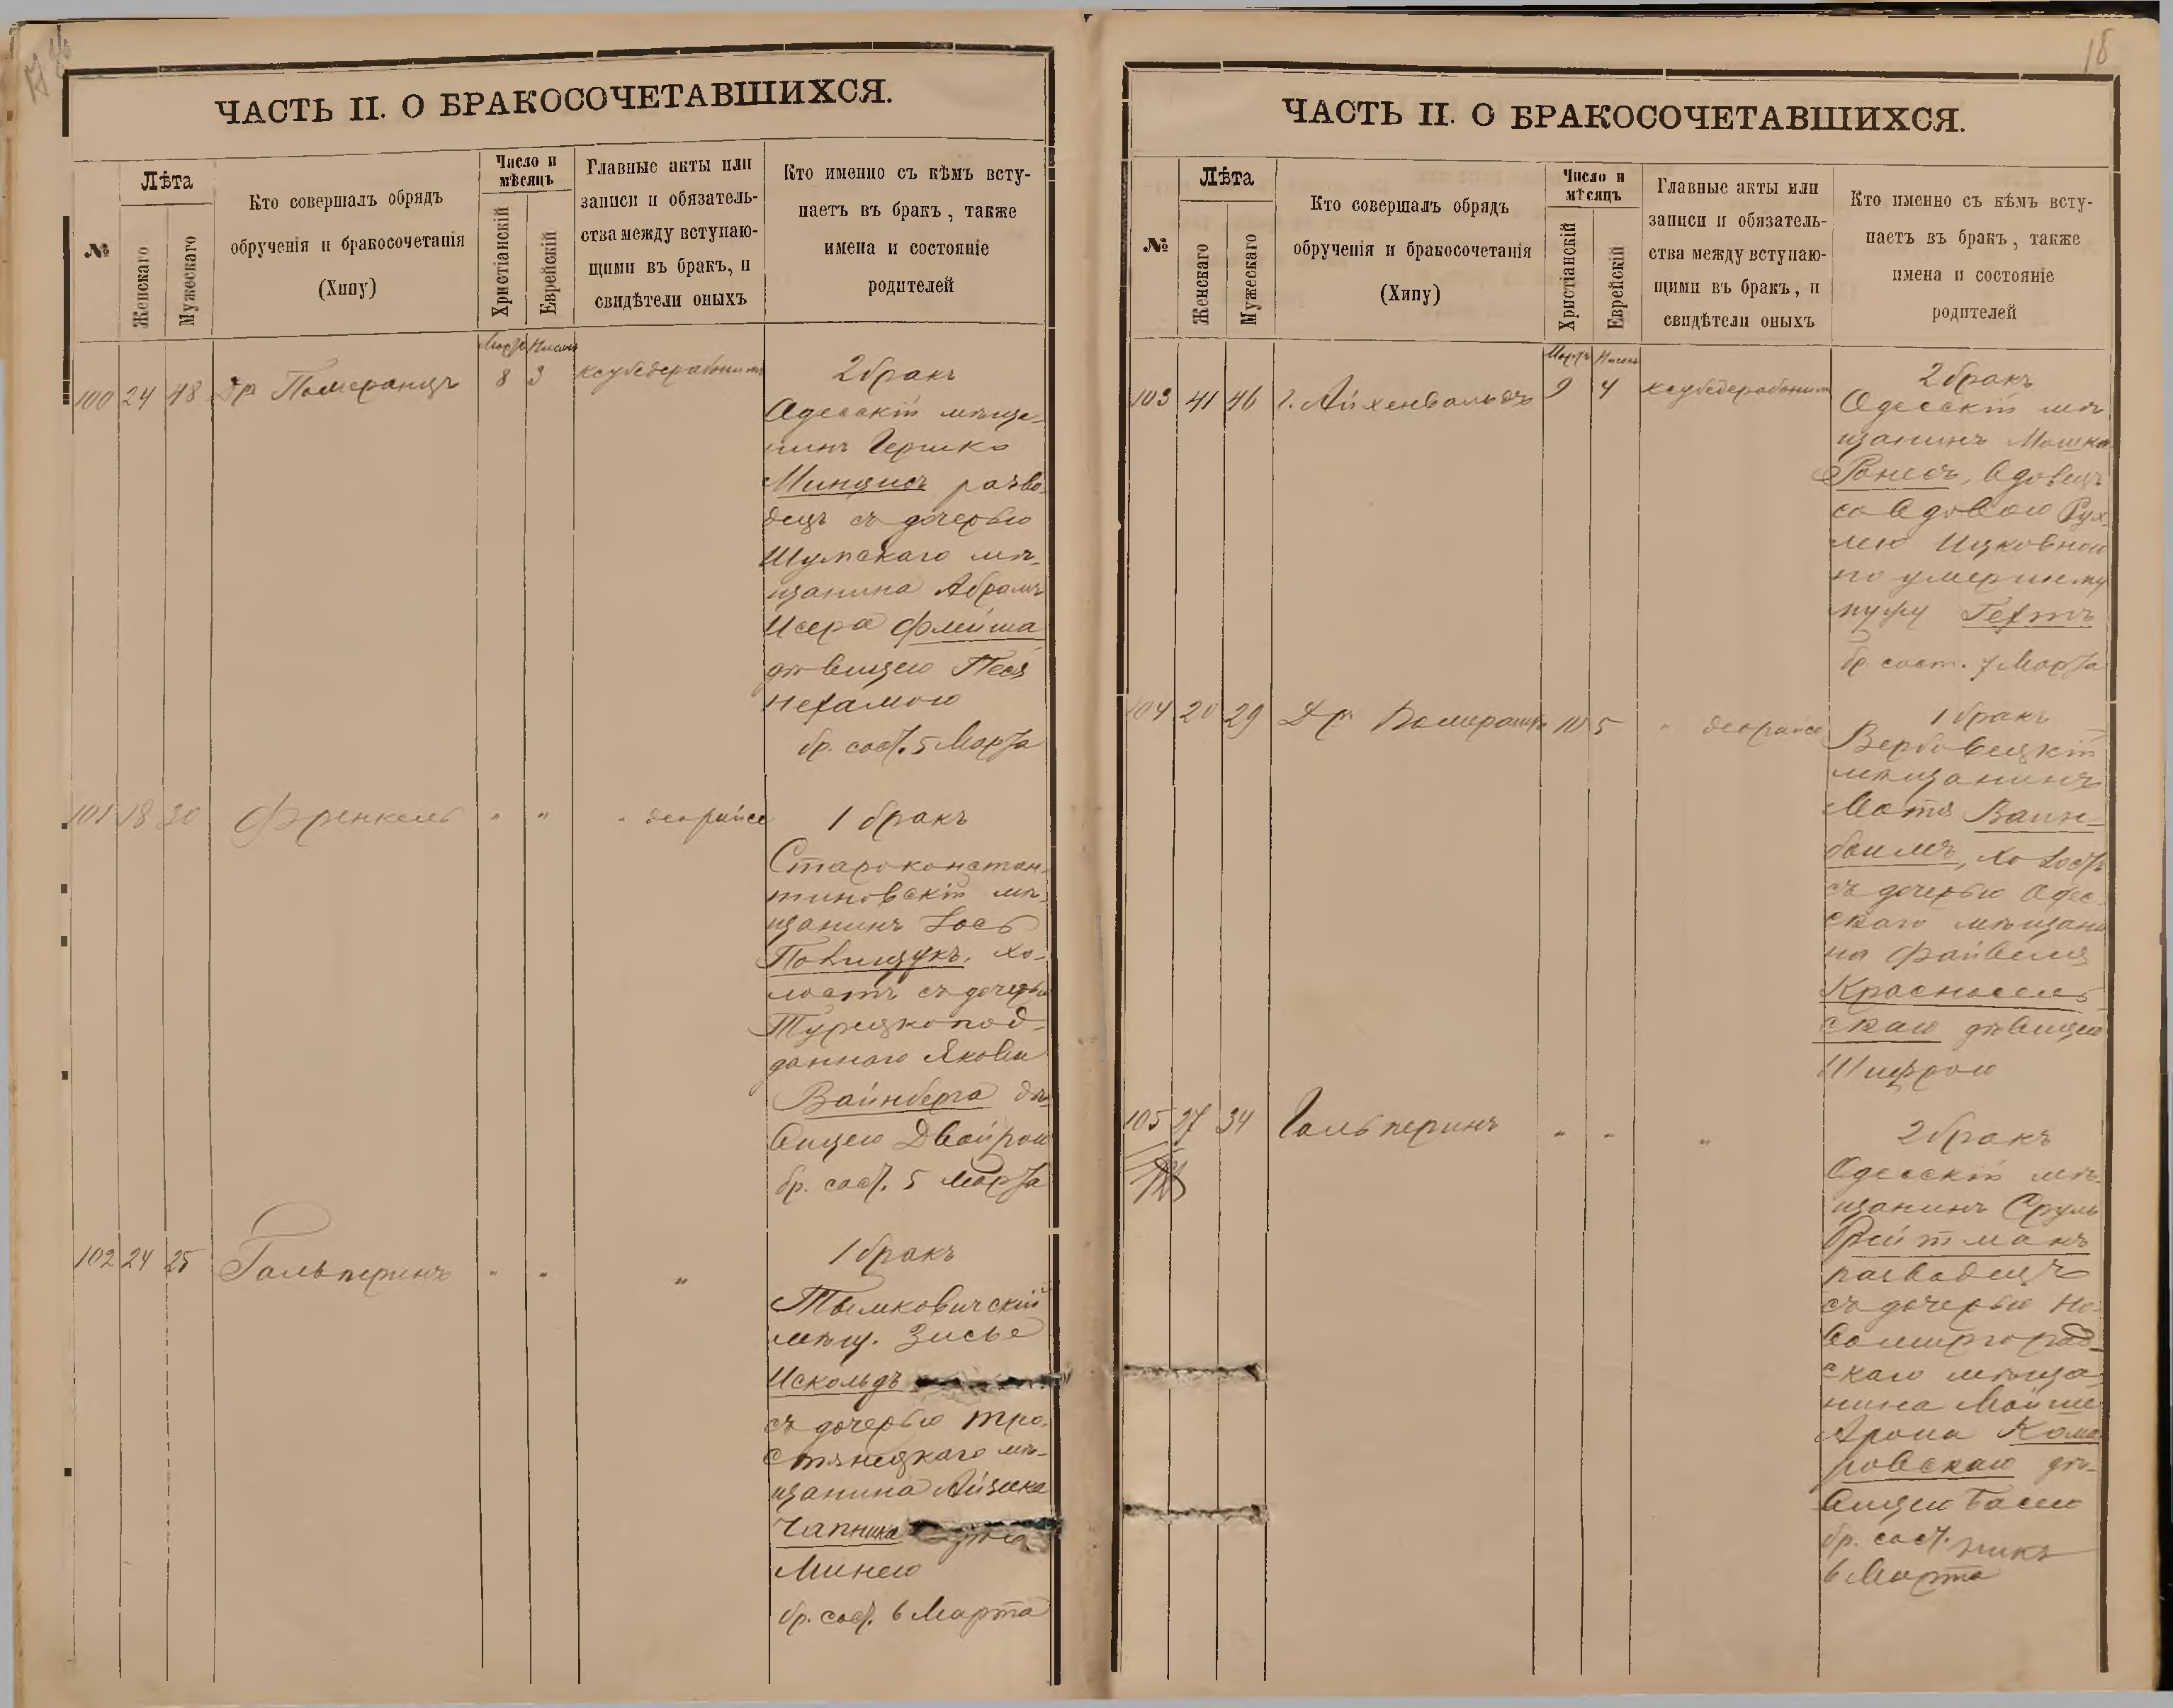 ЧАСТЬ II. О БРАКОСОЧЕТАВШИХСЯ.
№
Лѣта
Женскаго
Мужескаго
Кто совершалъ обрядъ
обрученія и бракосочетанія
(Хипу)
Число и
мѣсяцъ
Христіанскій
Еврейскій
Главные акты или
записи и обязатель-
ства между вступаю-
щими въ бракъ, и
свидѣтели оныхъ
Кто именно съ кѣмъ всту-
паетъ въ бракъ, также
имена и состояніе
родителей
100 24 48 Др Померанцъ Мартъ 8 Нисанъ 3 ксубедерабонимъ
2 бракъ
Одесскій мѣща-
нинъ Гершко
Минцисъ разво-
децъ съ дочерью
Шумскаго мѣ-
щанина Абрамъ
Исера Флейша
дѣвицею Песя
Нехамою
бр. сост. 5 Марта
101 18 30 Френкель " " " деорайсе
1 бракъ
Староконстан-
тиновскій мѣ-
щанинъ Іось
Полищукъ, хо-
лостъ съ дочерью
Турецкопод-
даннаго Якова
Вайнберга дѣ-
вицею Двойрою
бр. сост. 5 Марта
102 24 25 Гальперинъ " " "
1 бракъ
Тымковичскій
мѣщ. Зисье
Искольдъ
съ дочерью Тро-
стянецкаго мѣ-
щанина Айзика
Чапника
Минею
бр. сост. 6 Марта
18
ЧАСТЬ II. О БРАКОСОЧЕТАВШИХСЯ.
№
Лѣта
Женскаго
Мужескаго
Кто совершалъ обрядъ
обрученія и бракосочетанія
(Хипу)
Число и
мѣсяцъ
Христіанскій
Еврейскій
Главные акты или
записи и обязатель-
ства между вступаю-
щими въ бракъ, и
свидѣтели оныхъ
Кто именно съ кѣмъ всту-
паетъ въ бракъ, также
имена и состояніе
родителей
103 41 46 г. Айхенвальдъ Мартъ 9 Нисанъ 4 ксубедерабонимъ
2 бракъ
Одесскій мѣ
щанинъ Мошка
Ронесъ, вдовецъ
со вдовою Рух-
лею Ицковною
по умершему
мужу Гехтъ
бр. сост. 7 Марта
104 20 29 Др Померанцъ 10 5 " деорайсе
1 бракъ
Вербовецкій
мѣщанинъ
Мотя Ваин-
боимъ, холостъ
съ дочерью Одес-
скаго мѣщани
на Файвеля
Красносель-
скаго дѣвицею
Шифрою
105 27 34 Гальперинъ " " "
2 бракъ
Одесскій мѣ-
щанинъ Сруль
Рейтманъ
разводецъ
съ дочерью Но-
вомиргород-
скаго мѣща-
нина Мойше
Арона Кома
ровскаго дѣ-
вицею Басею
бр. сост.
6 Марта